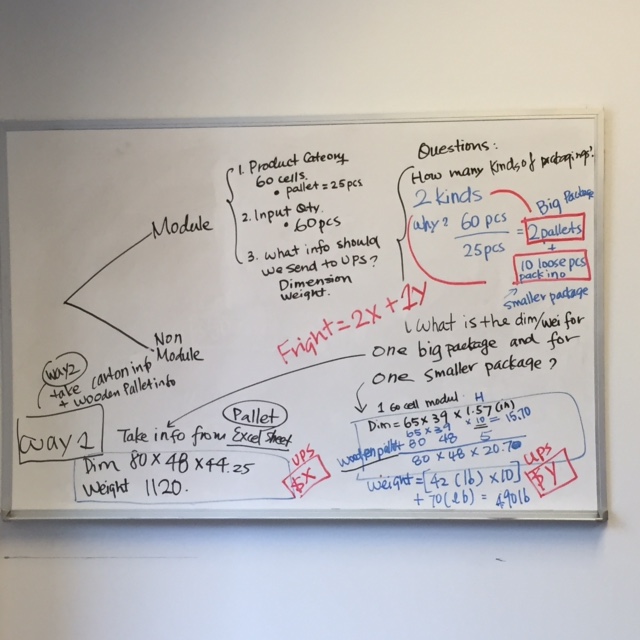 Module
Non
Module
1. Product Cateory
60 cells.
• pallet = 25 pcs
2. Input Qty.
• 60 pcs
3. what info should
we send to UPS?
Dimension
weight.
Questions:
How many kinds of packagings?
2 kinds
why? 60 pcs
25 pcs
= 2 pallets
+
10 loose pcs
packing
Big Package
smaller package
Fright = 2x + 1y
1. What is the dim/wei for
one big package and for
one smaller package?
way2
take carton info
+ wooden Pallet info
way 1
Take info from Excel Sheet
Pallet
Dim 80 x 48 x 44.25
Weight 1120.
UPS
$X
1 60 cell modul H
Dim = 65 x 39 x 1.57 (in)
65 x 39 x 10 = 15.70
wooden pallet 80 48 5
80 x 48 x 20.70
Weight = [42 (lb) x 10]
+ 70 (lb) = 490 lb
UPS
$Y